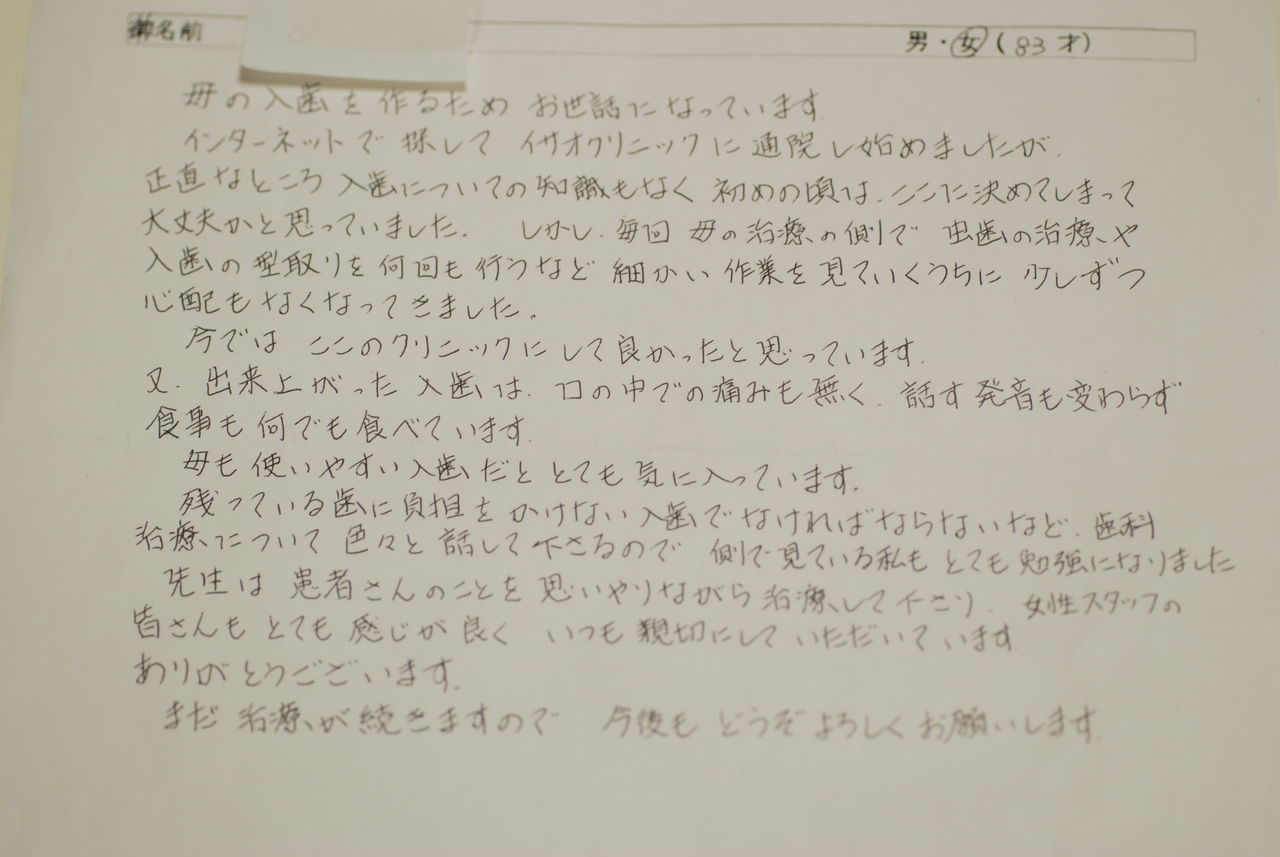 御名前 男・女(83才)
母の入歯を作るため お世話になっています.
インターネットで 探して イサオクリニックに 通院し始めましたが.
正直なところ 入歯についての知識もなく 初めの頃は. ここに決めてしまって
大丈夫かと思っていました. しかし. 毎回 母の治療の側で 虫歯の治療や
入歯の型取りを何回も行うなど 細かい作業を見ていくうちに 少しずつ
心配もなくなってきました。
今では ここのクリニックにして良かったと思っています.
又. 出来上がった入歯は. 口の中での痛みも無く. 話す発音も変わらず
食事も何でも食べています.
母も使いやすい入歯だと とても気に入っています.
残っている歯に負担をかけない入歯でなければならないなど. 歯科
治療について 色々と話して下さるので 側で見ている私もとても勉強になりました
先生は 患者さんのことを思いやりながら治療して下さり. 女性スタッフの
皆さんも とても感じが良く いつも親切にしていただいています.
ありがとうございます.
まだ治療が続きますので 今後もどうぞよろしくお願いします.